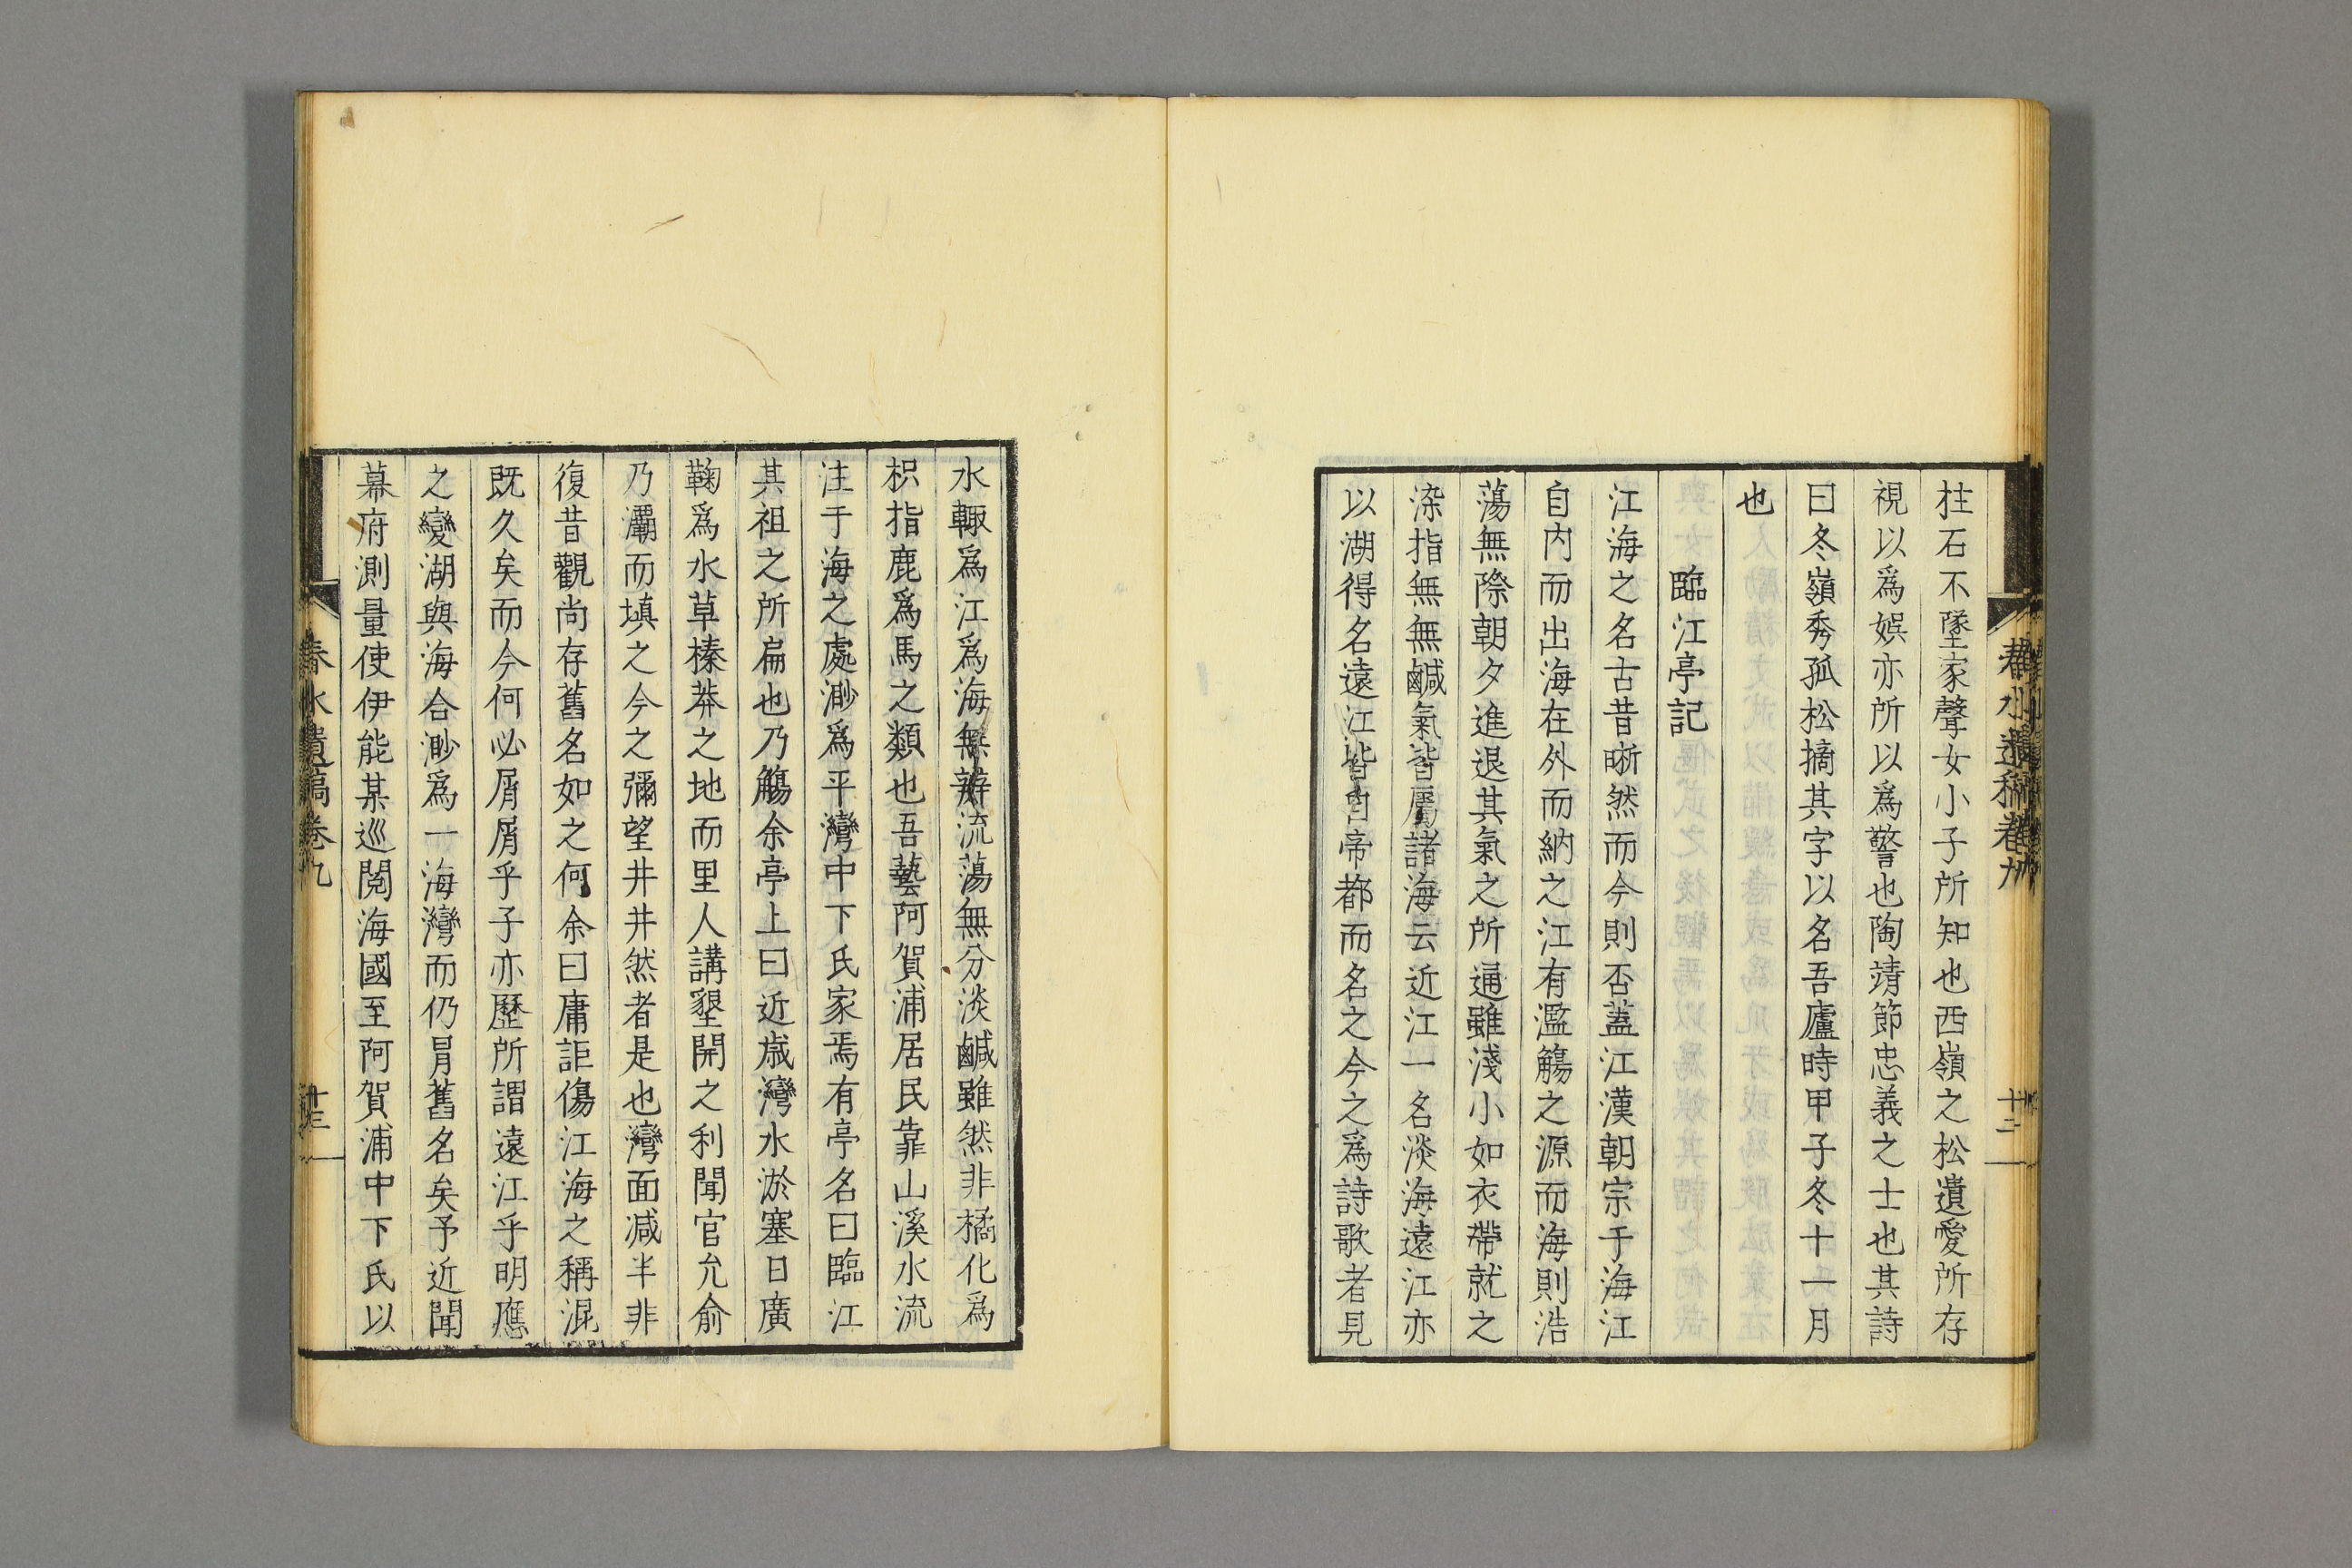 柱石不墜家聲女小子所知也西嶺之松遺愛所存
視以爲娯亦所以爲警也陶靖節忠義之士也其詩
曰冬嶺秀孤松摘其字以名吾廬時甲子冬十一月
也
臨江亭記
江海之名古昔晣然而今則否蓋江漢朝宗于海江
自内而出海在外而納之江有濫觴之源而海則浩
蕩無際朝夕進退其氣之所逼雖淺小如衣帶就之
染指無無鹹氣皆屬諸海云近江一名淡海遠江亦
以湖得名遠江皆自帝都而名之今之爲詩歌者見
水輙爲江爲海無辨流蕩無分淡鹹雖然非橘化爲
枳指鹿爲馬之類也吾藝阿賀浦居民靠山溪水流
注于海之處渺爲平灣中下氏家焉有亭名曰臨江
其祖之所扁也乃觴余亭上曰近歳灣水淤塞日廣
鞠爲水草榛莽之地而里人講墾開之利聞官允俞
乃灞而填之今之彌望井井然者是也灣面減半非
復昔觀尚存舊名如之何余曰庸詎傷江海之稱混
既久矣而今何必屑屑乎子亦歷所謂遠江乎明應
之變湖與海合渺爲一海灣而仍冐舊名矣予近聞
幕府測量使伊能某巡閲海國至阿賀浦中下氏以
春水遺稿卷九
十二
春水遺稿卷九
十三